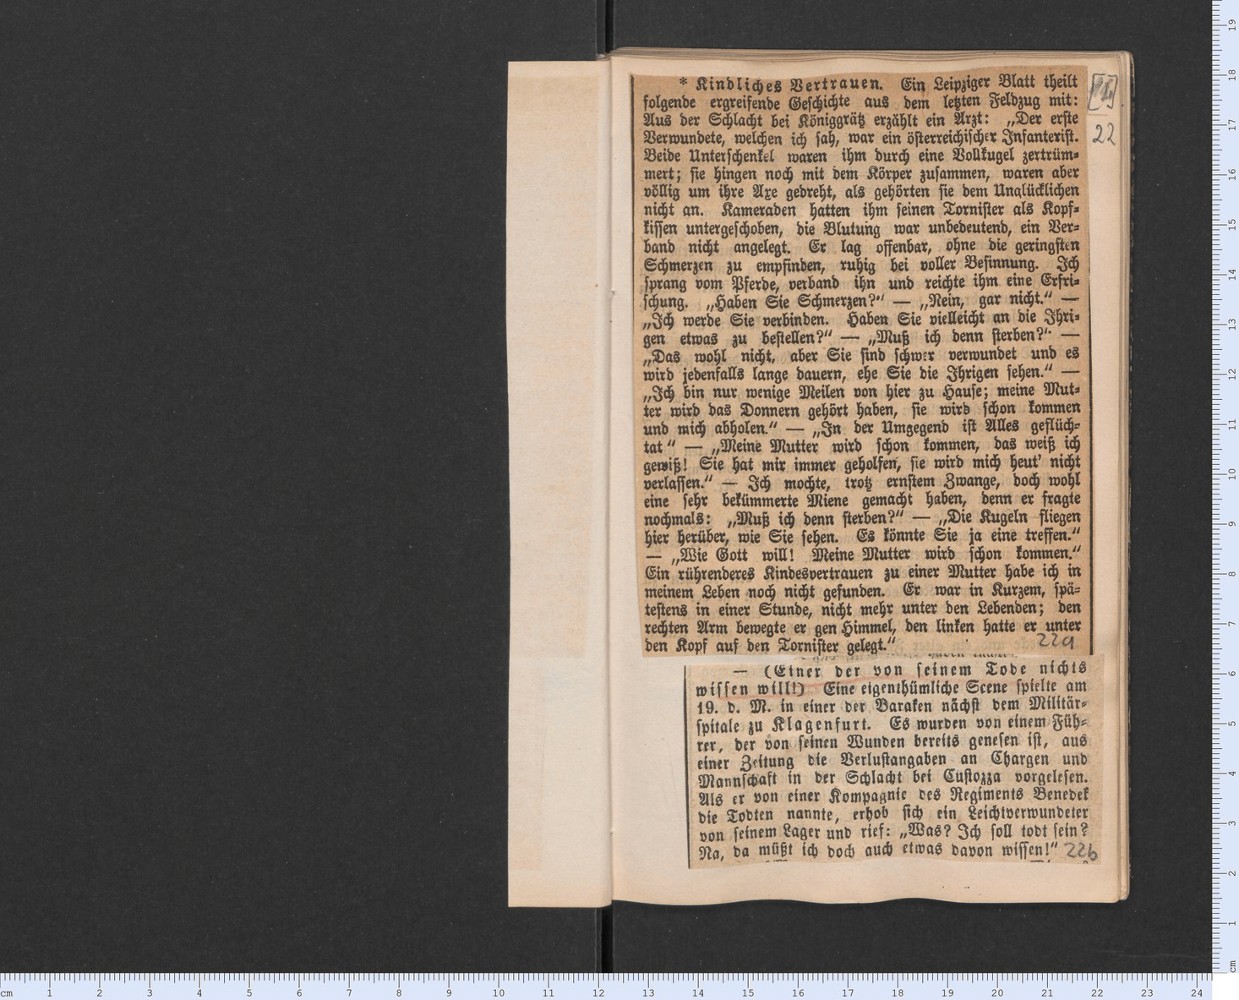 * Kindliches Vertrauen. Ein Leipziger Blatt theilt
folgende ergreifende Geschichte aus dem letzten Feldzug mit:
Aus der Schlacht bei Königgrätz erzählt ein Arzt: „Der erste
Verwundete, welchen ich sah, war ein österreichischer Infanterist.
Beide Unterschenkel waren ihm durch eine Vollkugel zertrüm-
mert; sie hingen noch mit dem Körper zusammen, waren aber
völlig um ihre Axe gedreht, als gehörten sie dem Unglücklichen
nicht an. Kameraden hatten ihm seinen Tornister als Kopf-
kissen untergeschoben, die Blutung war unbedeutend, ein Ver-
band nicht angelegt. Er lag offenbar, ohne die geringsten
Schmerzen zu empfinden, ruhig bei voller Besinnung. Ich
sprang vom Pferde, verband ihn und reichte ihm eine Erfri-
schung. „Haben Sie Schmerzen?“ — „Nein, gar nicht.“ —
„Ich werde Sie verbinden. Haben Sie vielleicht an die Ihri-
gen etwas zu bestellen?“ — „Muß ich denn sterben?“ —
„Das wohl nicht, aber Sie sind schwer verwundet und es
wird jedenfalls lange dauern, ehe Sie die Ihrigen sehen.“ —
„Ich bin nur wenige Meilen von hier zu Hause; meine Mut-
ter wird das Donnern gehört haben, sie wird schon kommen
und mich abholen.“ — „In der Umgegend ist Alles geflüch-
tat“ — „Meine Mutter wird schon kommen, das weiß ich
gewiß! Sie hat mir immer geholfen, sie wird mich heut' nicht
verlassen.“ — Ich mochte, trotz ernstem Zwange, doch wohl
eine sehr bekümmerte Miene gemacht haben, denn er fragte
nochmals: „Muß ich denn sterben?“ — „Die Kugeln fliegen
hier herüber, wie Sie sehen. Es könnte Sie ja eine treffen.“
— „Wie Gott will! Meine Mutter wird schon kommen.“
Ein rührenderes Kindesvertrauen zu einer Mutter habe ich in
meinem Leben noch nicht gefunden. Er war in Kurzem, spä-
testens in einer Stunde, nicht mehr unter den Lebenden; den
rechten Arm bewegte er gen Himmel, den linken hatte er unter
den Kopf auf den Tornister gelegt.“ 22a
22
— (Einer der von seinem Tode nichts
wissen will!) Eine eigenthümliche Scene spielte am
19. d. M. in einer der Baraken nächst dem Militär-
spitale zu Klagenfurt. Es wurden von einem Füh-
rer, der von seinen Wunden bereits genesen ist, aus
einer Zeitung die Verlustangaben an Chargen und
Mannschaft in der Schlacht bei Custozza vorgelesen.
Als er von einer Kompagnie des Regiments Benedek
die Todten nannte, erhob sich ein Leichtverwundeter
von seinem Lager und rief: „Was? Ich soll todt sein?
Na, da müßt ich doch auch etwas davon wissen!“ 22b
cm 1 2 3 4 5 6 7 8 9 10 11 12 13 14 15 16 17 18 19 20 21 22 23 24
cm 1 2 3 4 5 6 7 8 9 10 11 12 13 14 15 16 17 18 19